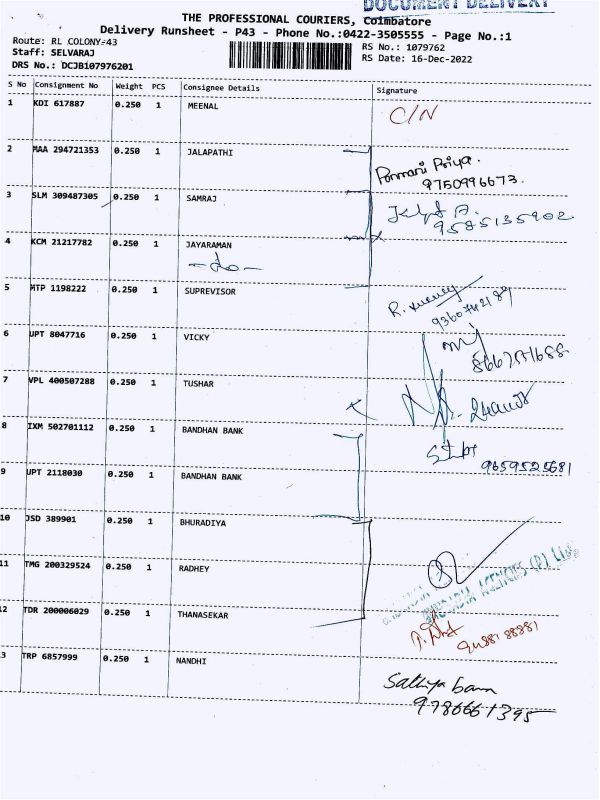 DOCUMENT DELIVERY
THE PROFESSIONAL COURIERS, Coimbatore
Delivery Runsheet - P43 - Phone No.:0422-3505555 - Page No.:1
Route: RL COLONY-43
Staff: SELVARAJ
DRS No.: DCJB107976201
RS No.: 1079762
RS Date: 16-Dec-2022
S No Consignment No Weight PCS Consignee Details Signature
1 KDI 617887 0.250 1 MEENAL C/N
2 MAA 294721353 0.250 1 JALAPATHI
Ponmani Priya.
9750996673.
3 SLM 309487305 0.250 1 SAMRAJ
9585135902
4 KCM 21217782 0.250 1 JAYARAMAN
-do-
5 MTP 1198222 0.250 1 SUPREVISOR
R.
6 UPT 8047716 0.250 1 VICKY
7 VPL 400507288 0.250 1 TUSHAR
8 IXM 502701112 0.250 1 BANDHAN BANK
9659525681
9 UPT 2118030 0.250 1 BANDHAN BANK
10 JSD 389901 0.250 1 BHURADIYA
11 TMG 200329524 0.250 1 RADHEY
AGENCIES (P) Ltd
12 TDR 200006029 0.250 1 THANASEKAR
13 TRP 6857999 0.250 1 NANDHI
Sathiya
9786661395